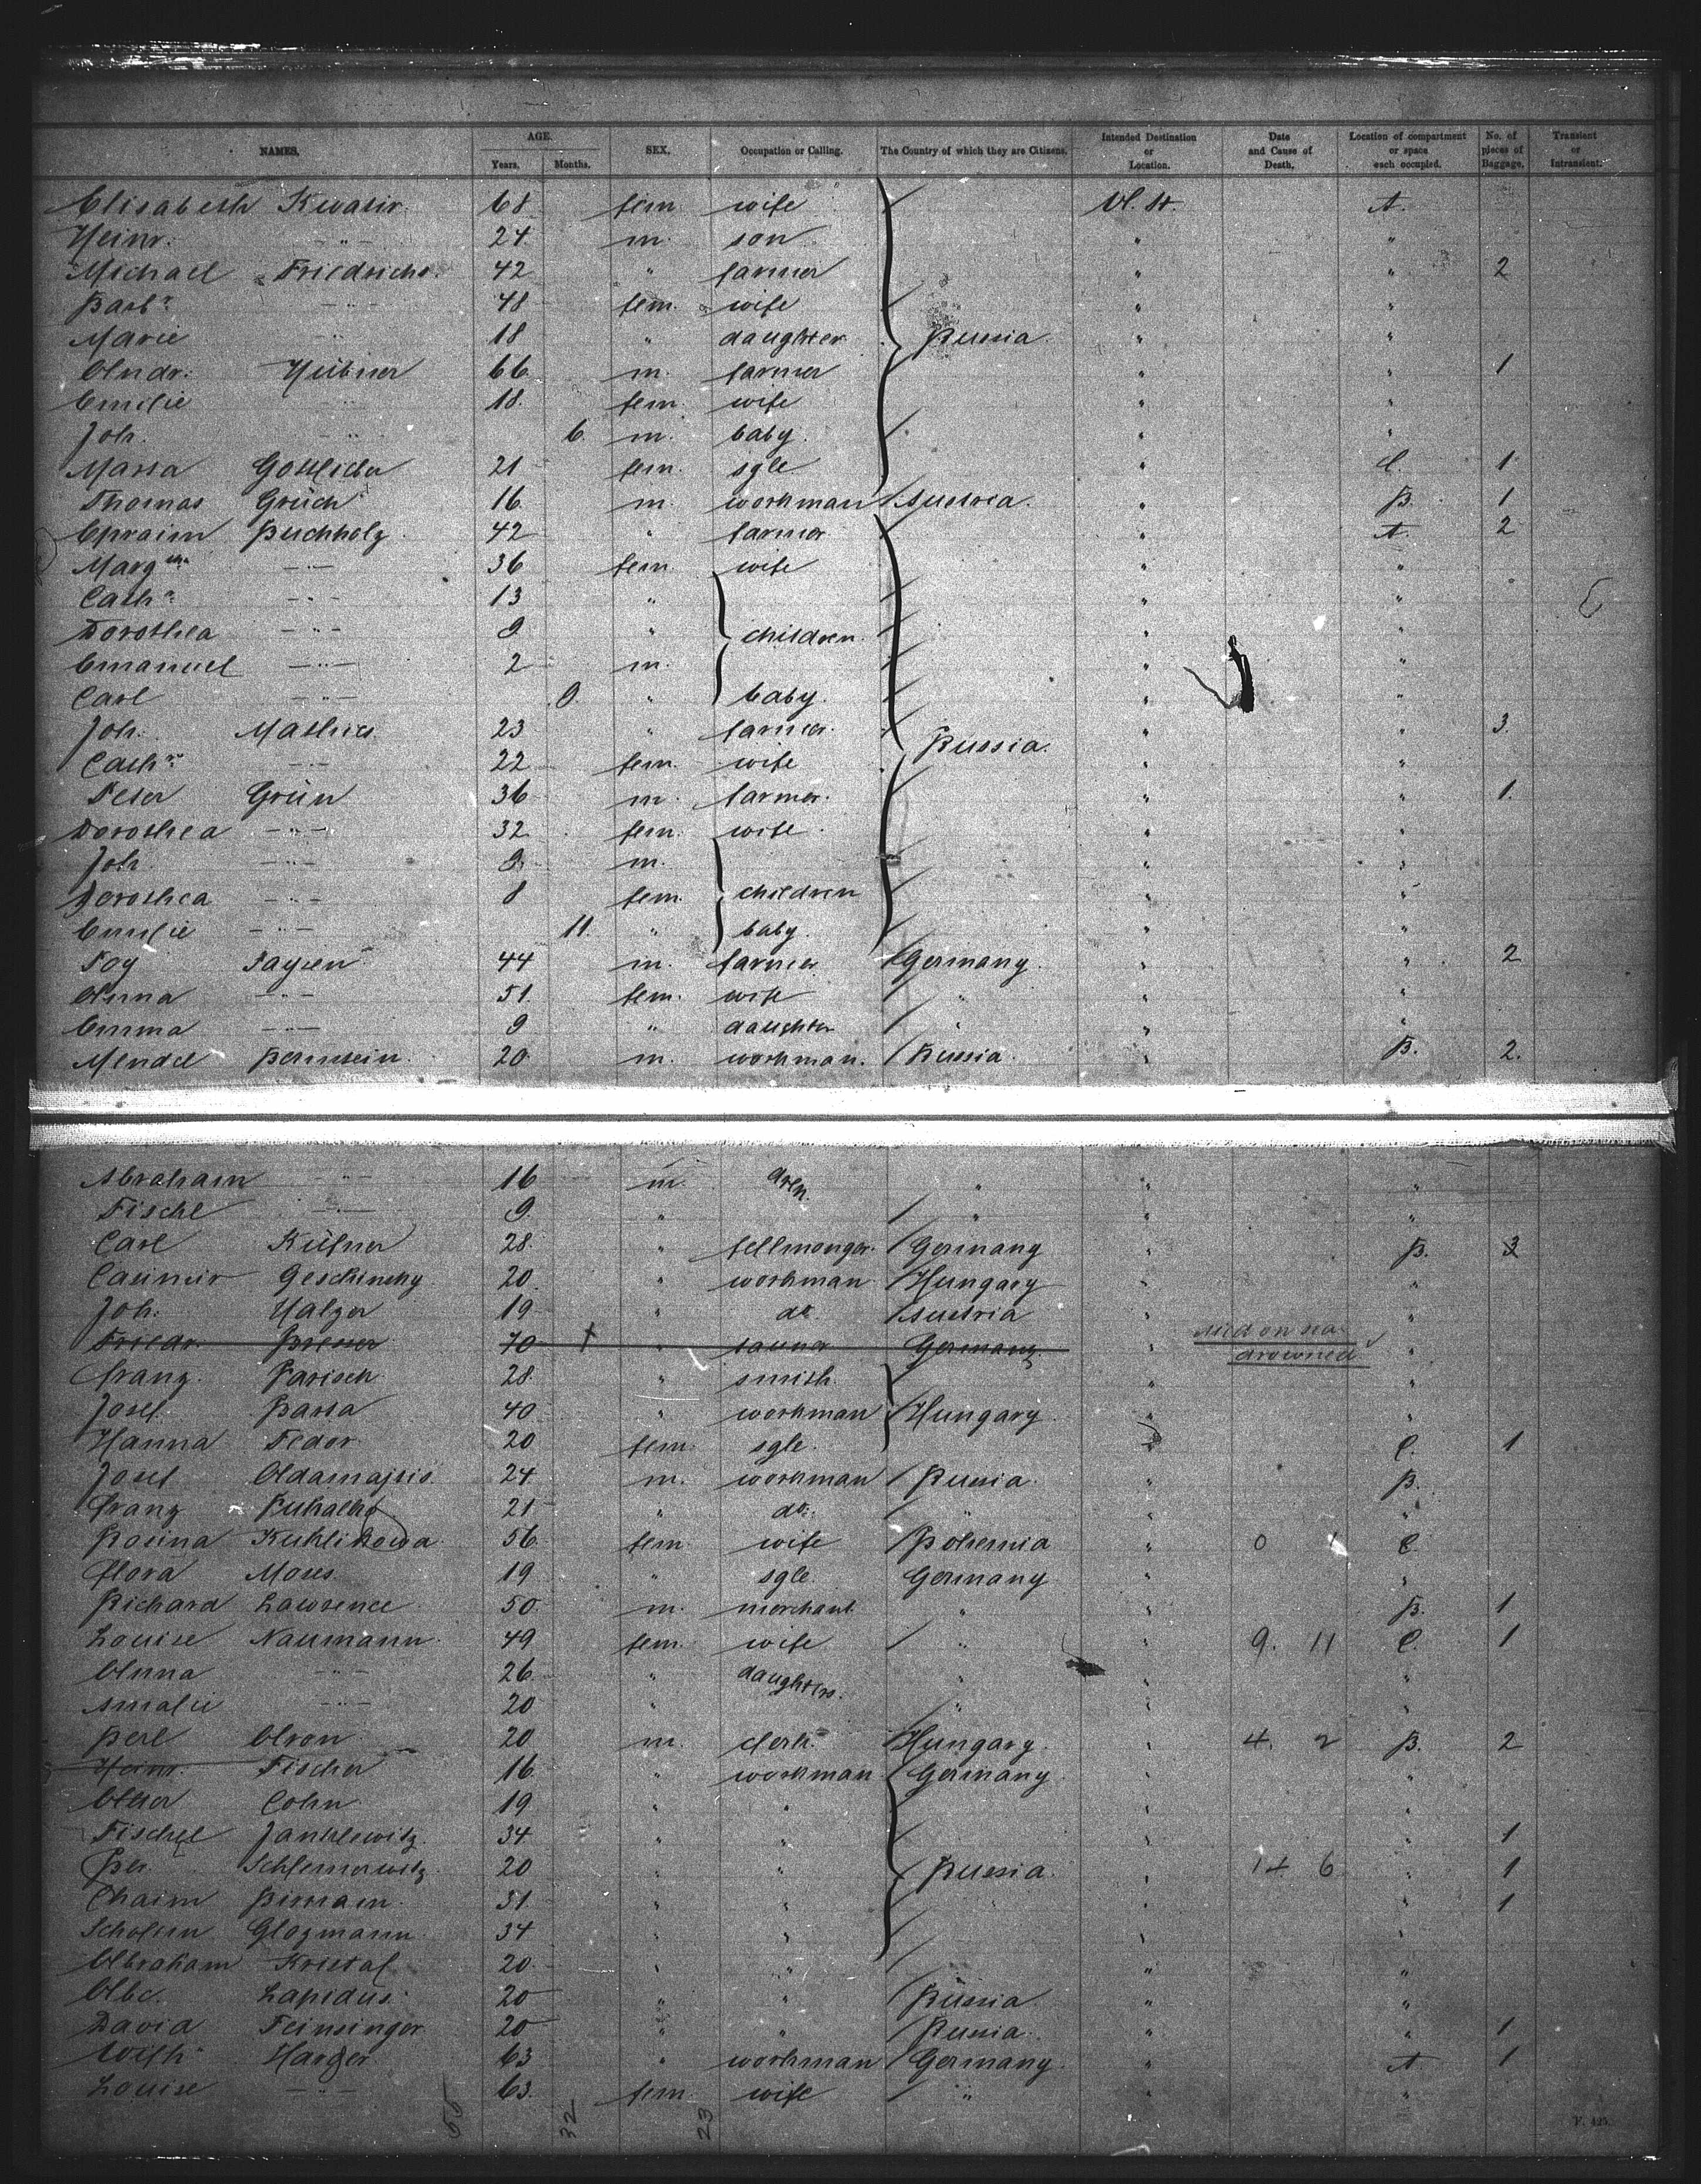 NAMES. AGE. Years. Months. SEX. Occupation or Calling. The Country of which they are Citizens. Intended Destination or Location. Date and Cause of Death. Location of compartment or space each occupied. No. of pieces of Baggage. Transient or Intransient.
Elisabeth Kwasir 68 fem wife U. St. A.
Heinr. " 24 m. son " "
Michael Friedrichs 42 " farmer " " 2
Barb. " 48 fem. wife " "
Marie " 18 " daughter Russia " "
Andr. Hübner 66 m. farmer " " 1
Emilie " 18. fem. wife " "
Joh. " 6 m. baby. " "
Maria Gottlieba 21 fem. sgle " C. 1
Thomas Grüch 16 m. workman Austria. " B. 1
Ephraim Buchholz 42 " farmer " A. 2
Marg " 36 fem. wife " "
Cath. " 13 " " "
Dorothea " 9 " children. " "
Emanuel " 2 m. " "
Carl " 9. " baby. " "
Joh. Mathies 23 " farmer. Russia. " " 3.
Cath. " 22 fem. wife " "
Peter Grün 36 m. farmer. " " 1.
Dorothea " 32 fem. wife " "
Joh. " 9. m. " "
Dorothea " 8 fem. children " "
Emilie " 11. " baby. " "
Foy Paysen 44 m. farmer Germany. " " 2
Anna " 51 fem. wife " " "
Emma " 9 " daughter " " "
Mendel Bernstein 20 m. workman. Russia. " B. 2.
Abraham " 16 m. dren. " " "
Fischl " 9. " " " "
Carl Küfner 28. " fellmonger. Germany " B. 3
Casimir Geschinsky 20 " workman Hungary " "
Joh. Halzer 19 " do Austria " "
Friedr. 70 " farmer Germany. " died on sea drowned "
Franz. Parisch 28. " smith. " "
Josef Barra 40 " workman Hungary " "
Hanna Fedor 20 fem. sgle. " C. 1
Josef Adamajtis. 24 m. workman Russia. " B.
Franz 21 " do. " " "
Rosina Kuklikowa 56 fem. wife Bohemia " 0 1 C.
Flora Moses 19 " sgle Germany " "
Richard Lawrence 50. m. merchant " " B. 1
Louise Naumann 49 fem. wife " " 9. 11 C. 1
Anna " 26 " daughters. " " "
Amalie " 20 " " " "
Berl Aron 20 m. clerk. Hungary. " 4. 2 B. 2
Heinr. Fischer 16 " workman Germany " "
Cohn 19 " " " "
Fischel Janklewitz. 34 " " " " 1
Ber. Schlemowitz. 20 " " Russia " 14 6 " 1
Chaim 31 " " " " 1
Scholem Glozmann 34 " " " "
Abraham Kristal 20. " " " "
Abc. Lapidus. 20 " " Russia " "
David Feinsinger 20 " " Russia. " " 1
Wilh. Harder 63 " workman Germany. " A 1
Louise " 63. fem. wife " " "
55 32 23